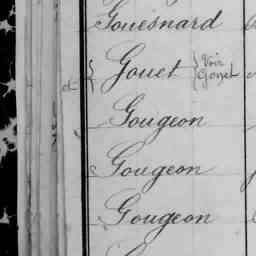 Gouesnard
Gouet { Voir
Gonet
Gougeon
Gougeon
Gougeon